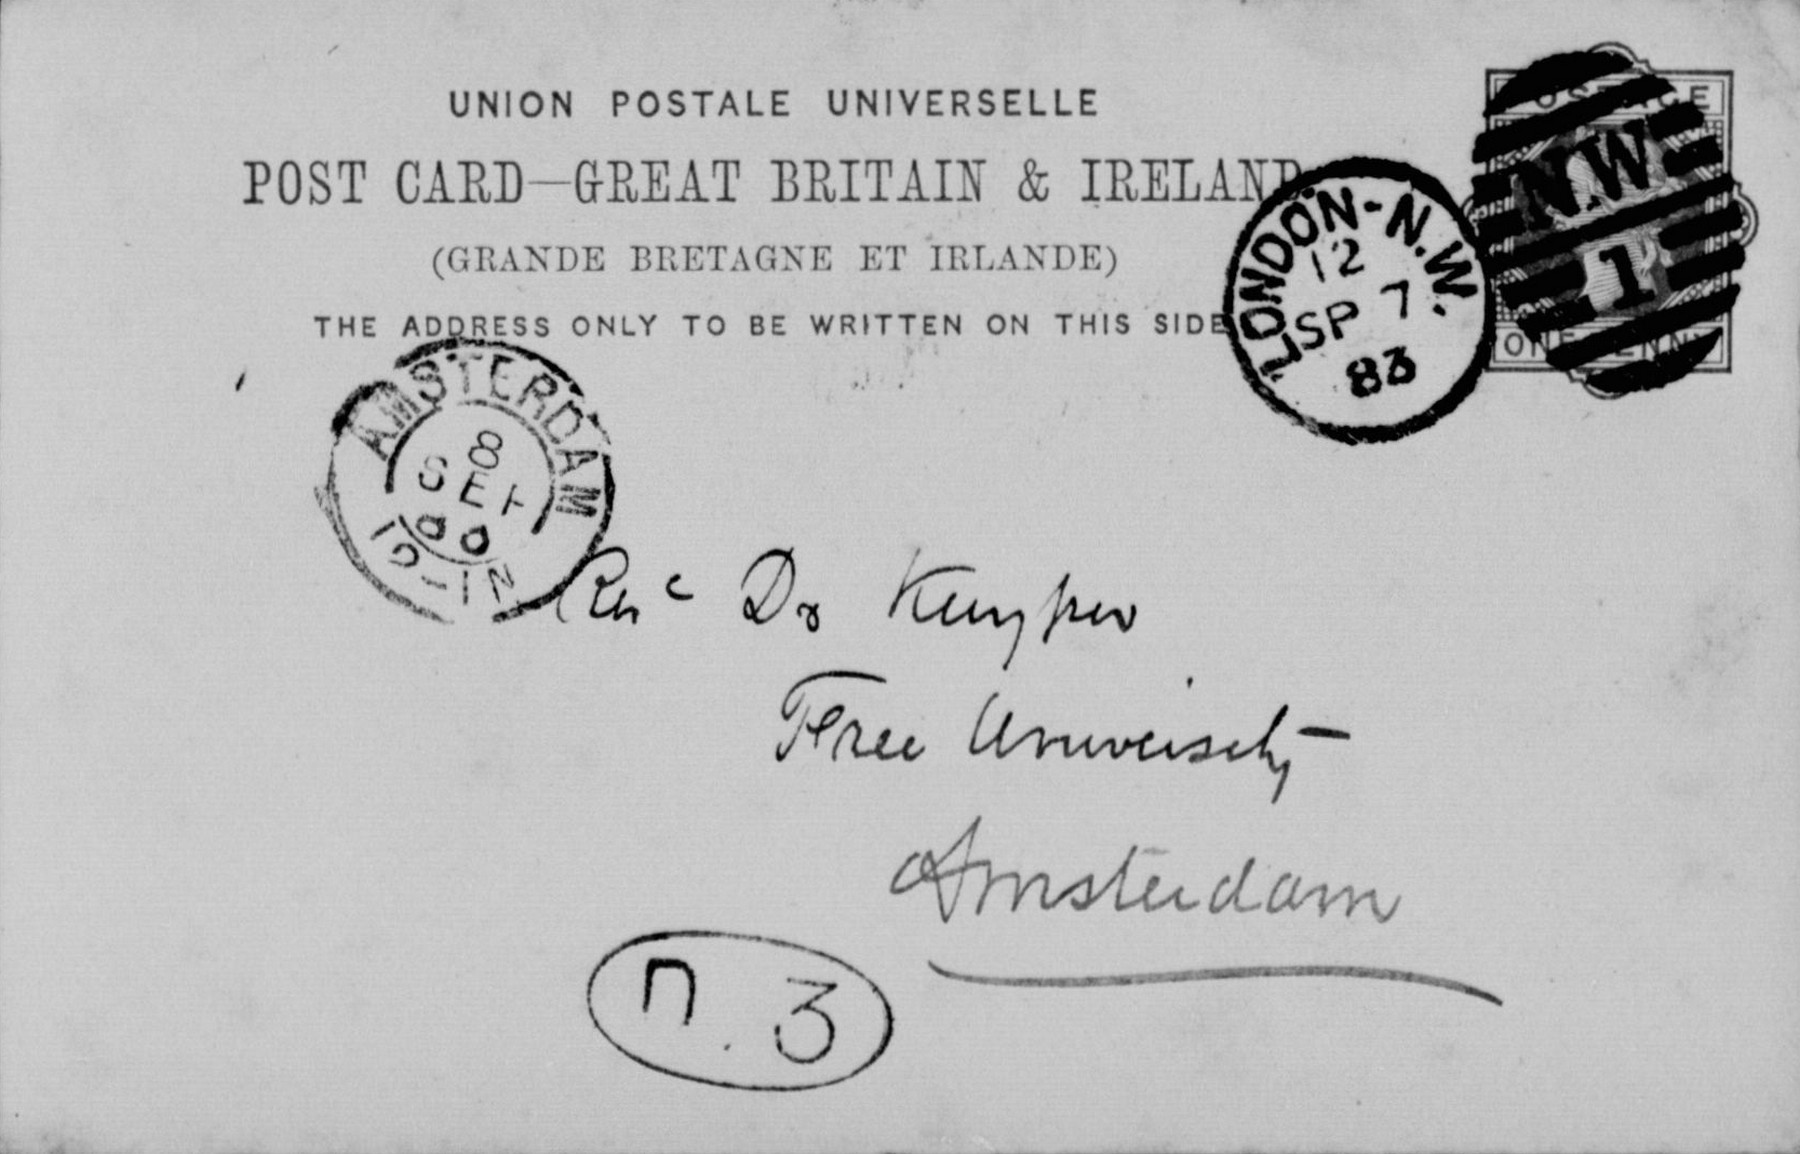 UNION POSTALE UNIVERSELLE
POST CARD—GREAT BRITAIN & IRELAND
(GRANDE BRETAGNE ET IRLANDE)
THE ADDRESS ONLY TO BE WRITTEN ON THIS SIDE
POSTAGE
NW
1
ONE PENNY
LONDON-N.W.
12
SP 7
83
AMSTERDAM
8
SEP
12-1N
Dr Kuyper
Free University
Amsterdam
n. 3